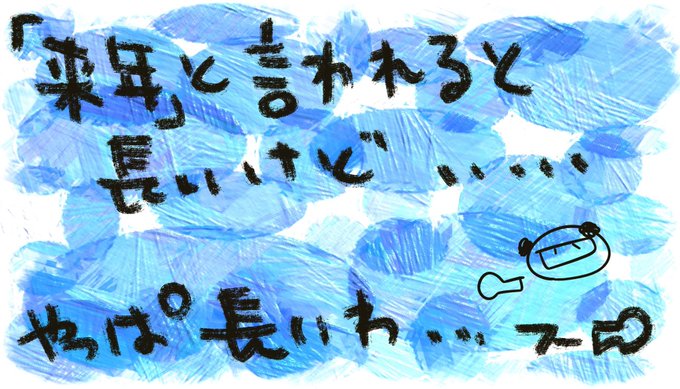 「来年」と言われると
長いけど・・・・・
やっぱ長いわ・・・